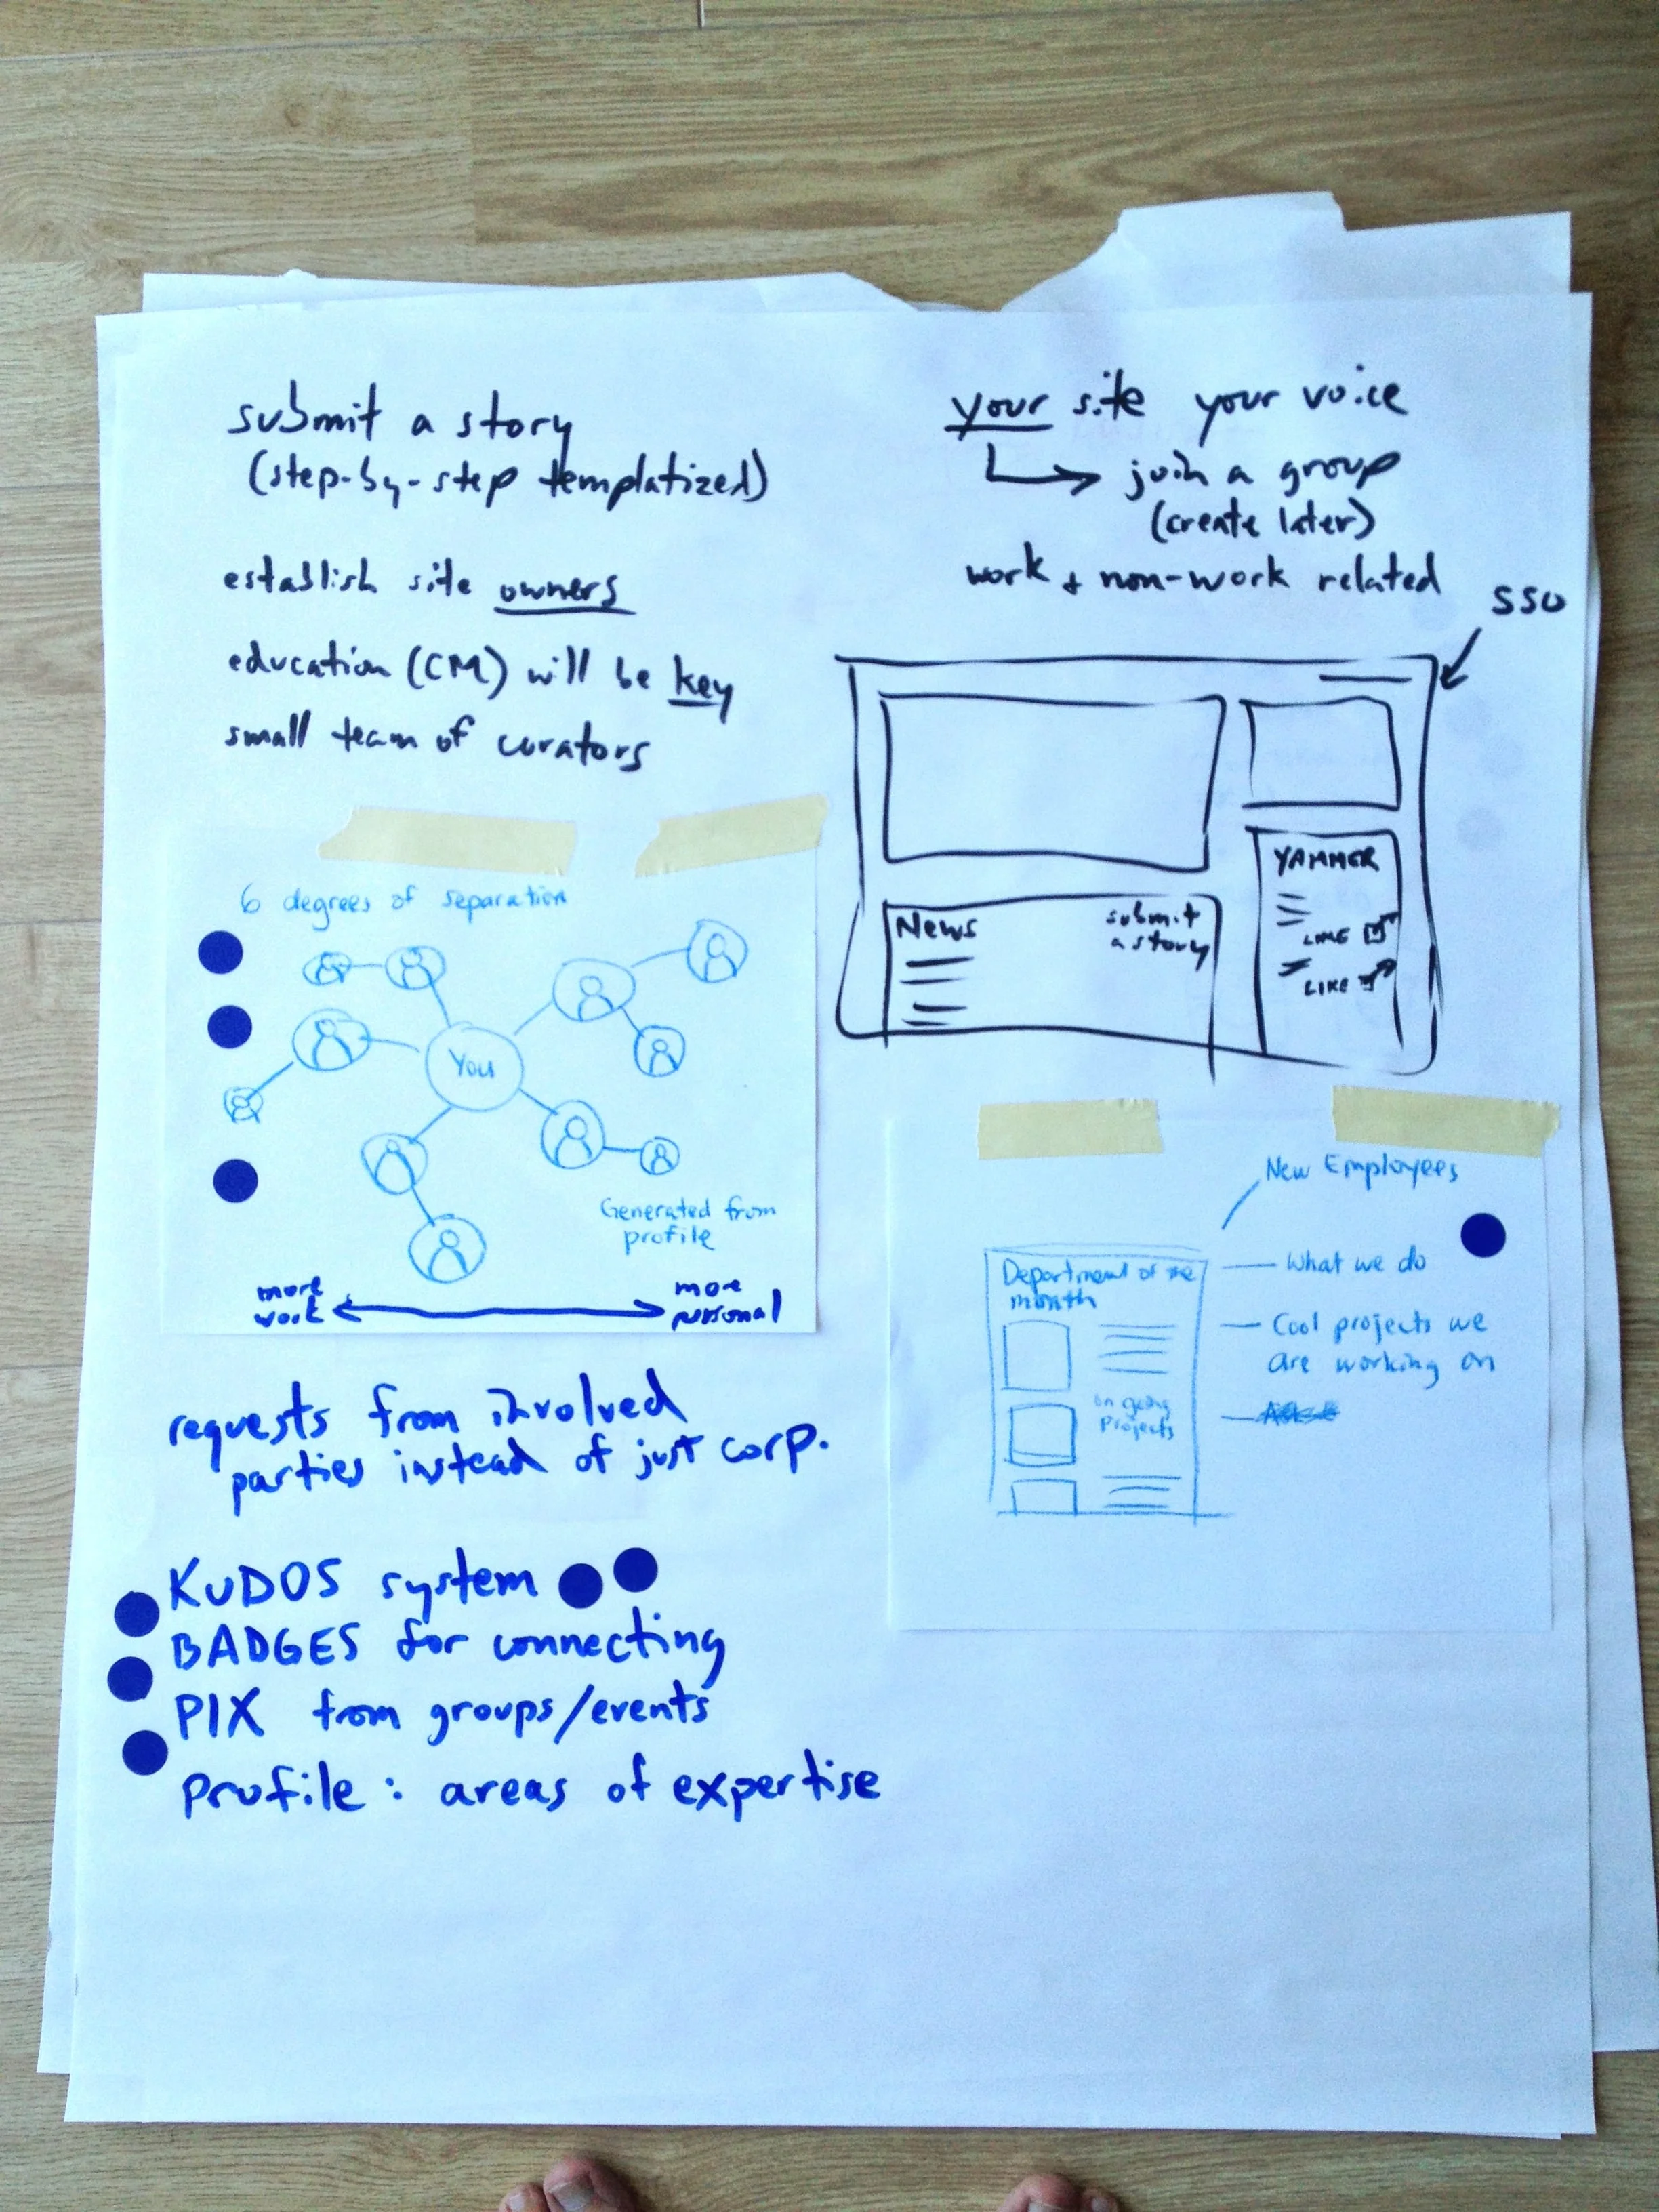 submit a story
(step-by-step templatized)
establish site owners
education (CM) will be key
small team of curators
your site your voice
join a group
(create later)
work + non-work related
SSO
News
submit
a story
YAMMER
LIKE
LIKE
6 degrees of separation
You
Generated from
profile
more
work
more
personal
New Employees
What we do
Cool projects we
are working on
Department of the
month
on going
Projects
requests from involved
parties instead of just corp.
KUDOS system
BADGES for connecting
PIX from groups/events
Profile: areas of expertise